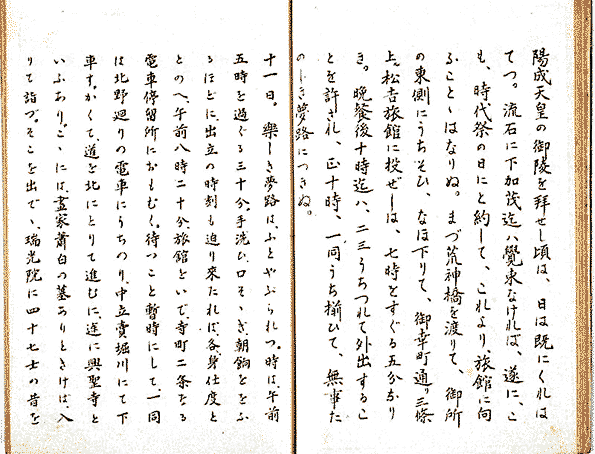 陽成天皇の御陵を拜せし頃は、日は既にくれは
てつ。流石に下加茂迄ハ覺束なければ、遂に、こ
も、時代祭の日にと約して、これより、旅館に向
ふことゝはなりぬ。まづ荒神橋を渡りて、御所
の東側にうちそひ、なほ下りて、御幸町通り三條
上ル松吉旅館に投ぜしは、七時をすぐる五分なり
き。晩餐後十時迄ハ、二三うちつれて外出するこ
とを許され、正十時、一同うち揃ひて、無事た
のしき夢路につきぬ。
十一日。樂しき夢路は、ふとやぶられつ。時は、午前
五時を過ぐる三十分。手洗ひ、口そゝぎ、朝餉をとふ
るほどに、出立の時刻も迫り來たれば、各、身仕度と
とのへ、午前八時二十分、旅館をいで、寺町二条なる
電車停留所におもむく。待つこと暫時にして、一同
は北野廻りの電車にうちのり、中立賣堀川にて下
車す。かくて、道を北にとりて進むに、途に興聖寺と
いふあり。こゝには、畫家蕭白の墓ありときけば、入
りて詣づ。そこを出でゝ、瑞光院に四十七士の昔を